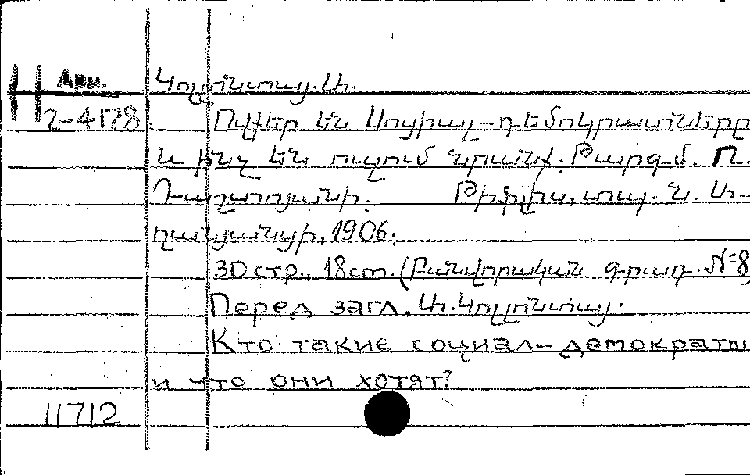 Арм. Կոլոնտայ. Ա.
2-4178 Ովքեր են Սոցիալ-դեմոկրատները
և ինչ են ուզում նրանք. Թարգմ. Ռ.
Դաշտոյանի. Թիֆլիս, տպ. Ն. Ա-
ղանյանցի, 1906.
30 стр., 18 cm. (Բանվորական գրադ. №8
Перед загл. Ա. Կոլոնտայ.
Кто такие социал-демократы
и что они хотят?
11712